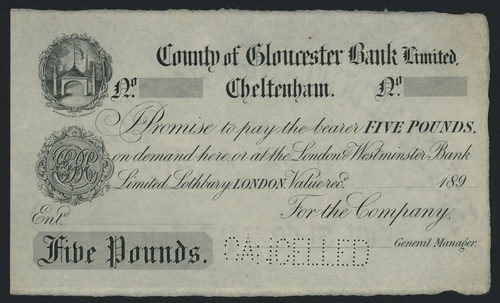 County of Gloucester Bank Limited,
Cheltenham.
No. No.
I Promise to pay the bearer FIVE POUNDS,
on demand here, or at the London & Westminster Bank
Limited, Lothbury LONDON. Value recd.
189
For the Company,
Entd.
Five Pounds.
CANCELLED
General Manager.